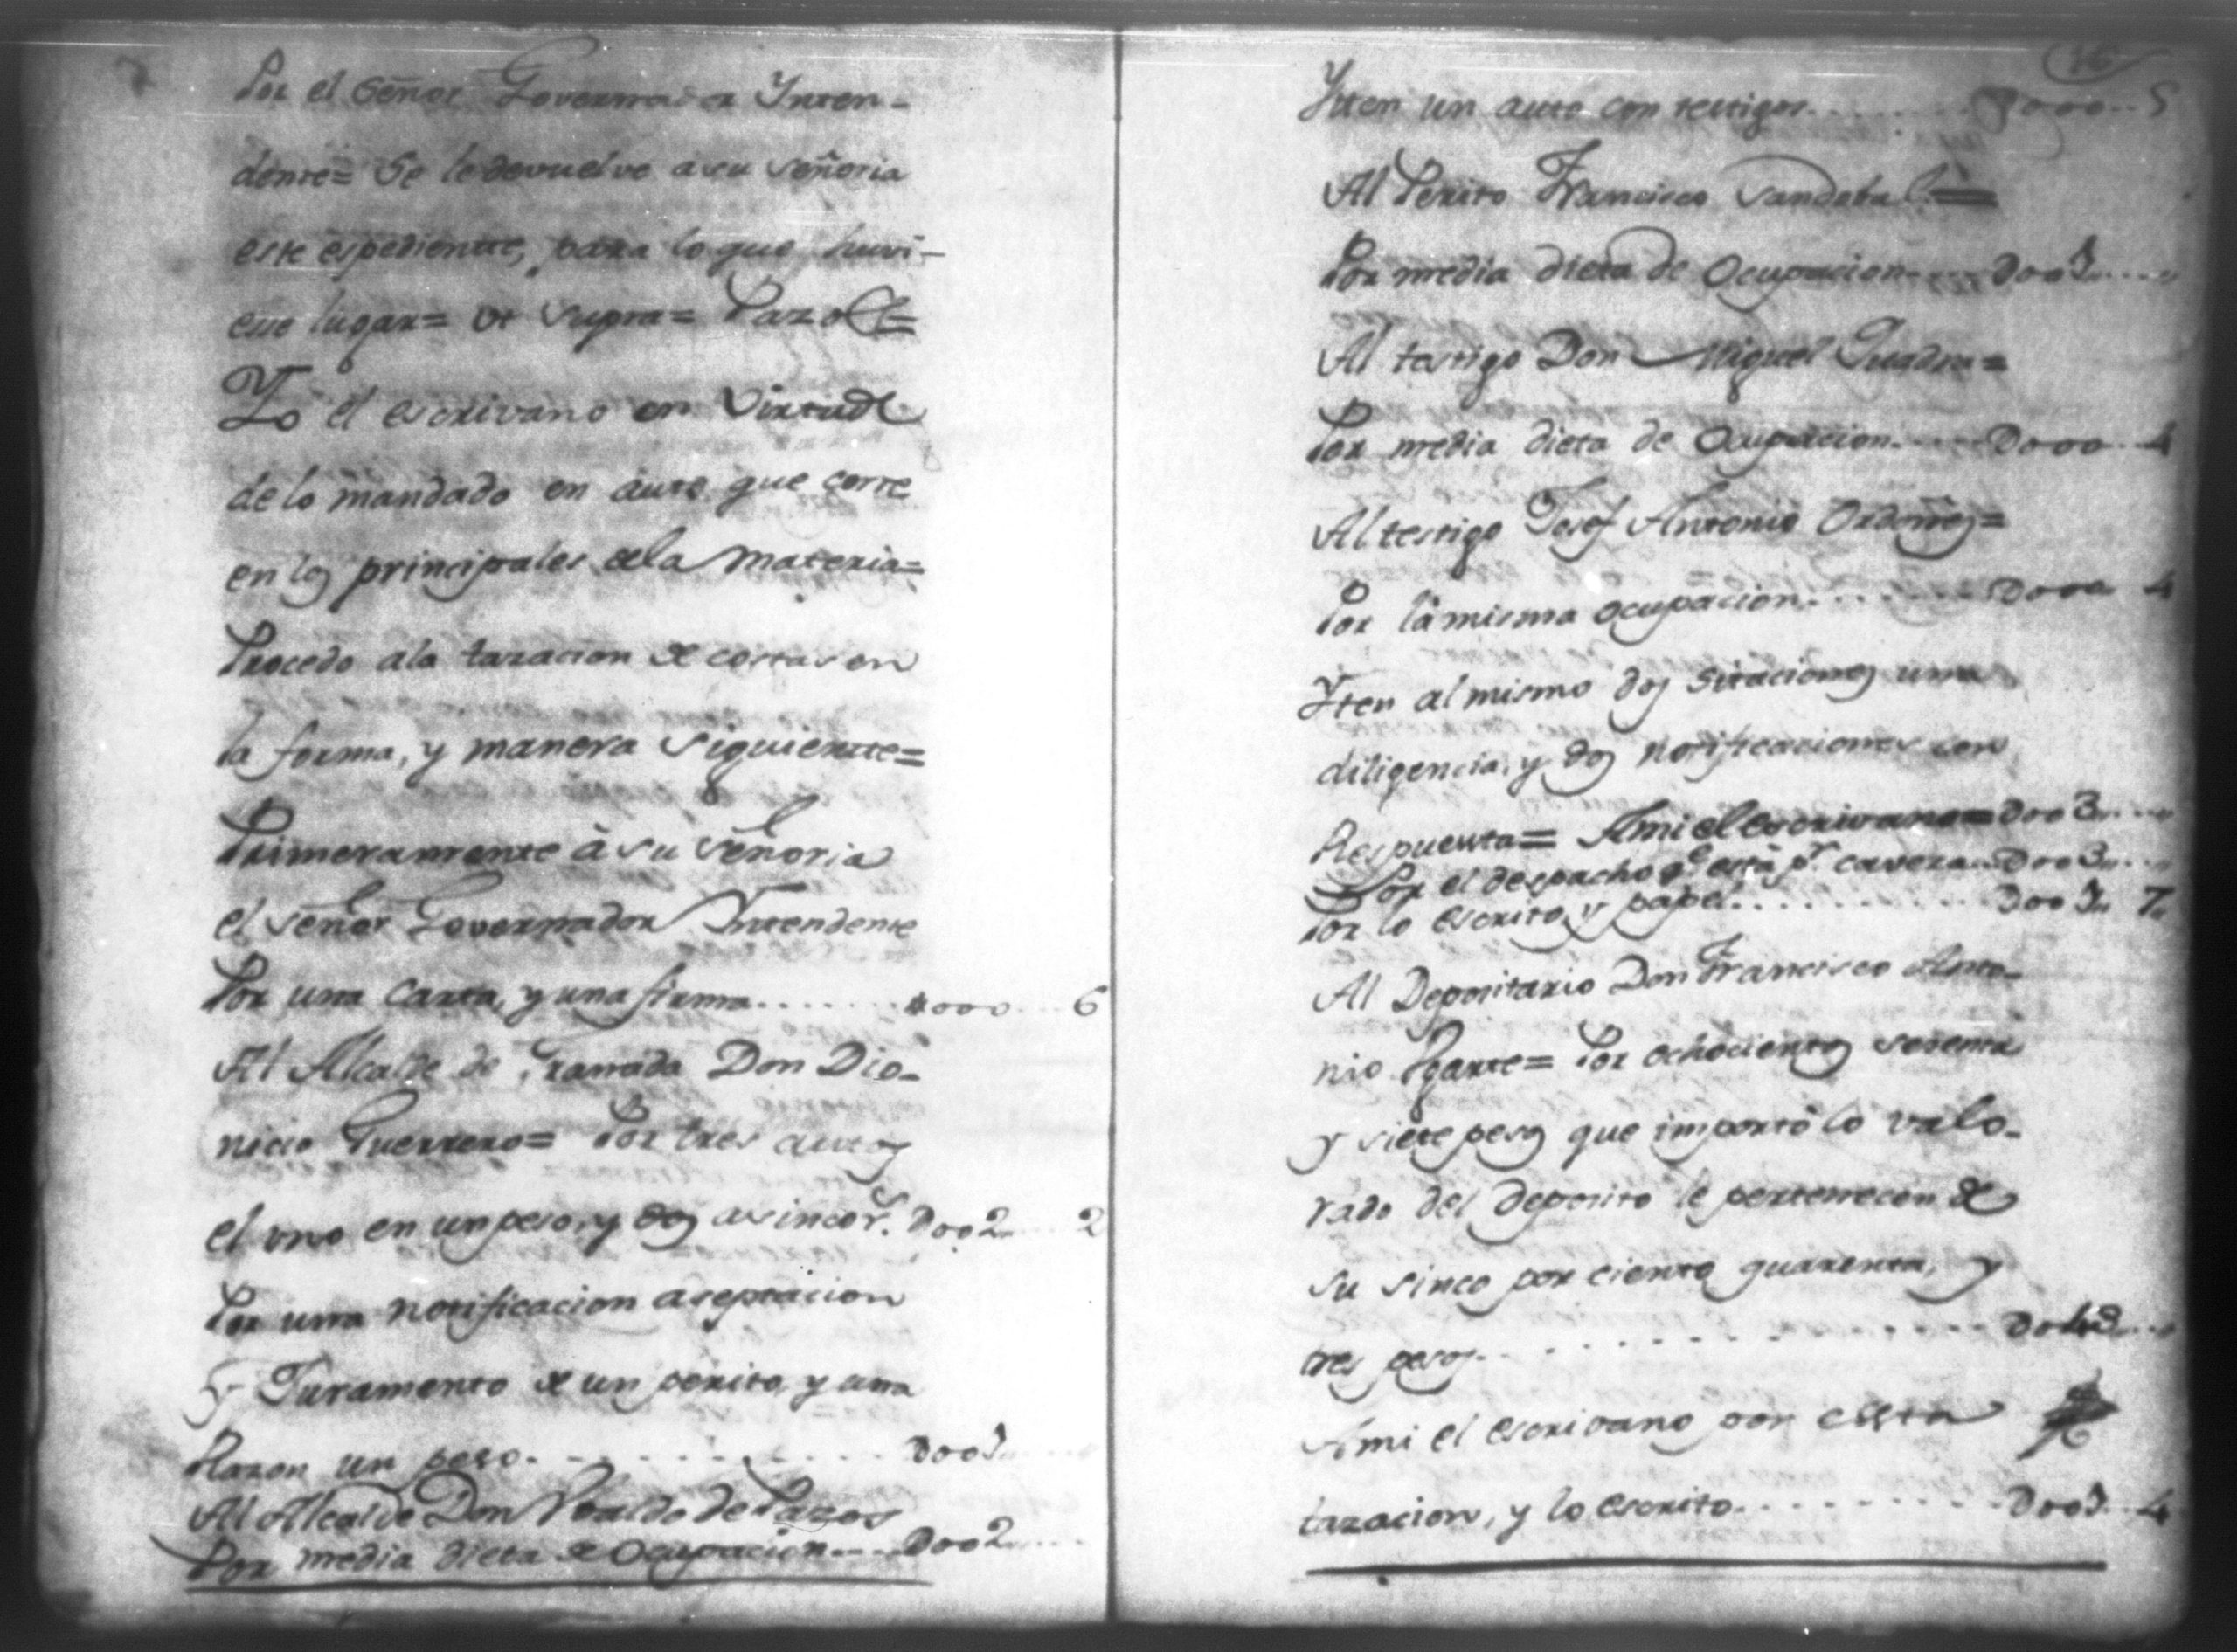 Por el Señor Governador Ynten-
dente= Se le devuelve a su Señoria
este espediente, para lo que huvi-
ere lugar= Vt Supra= Pazos=
Yo el escrivano en Virtud
de lo mandado en auto que corre
en los principales de la Materia=
Procedo ala tazacion de costas en
la forma, y manera Siguiente=
Primeramente à su Señoria
el Señor Governador Yntendente
Por una Carta, y una firma....... 000... 6
Al Alcalde de Granada Don Dio-
nicio Guerrero= Por tres autos
el vno en un peso, y dos a sinco rs. D002... 2
Por una notificacion aseptacion
y Juramento de un perito, y una
Razon un peso........... D001
Al Alcalde Don Vbaldo de Pazos
Por media dieta de Ocupacion.... D002
16
Yten un auto con testigos......... D000... 5
Al Perito Francisco Sandobal=
Por media dieta de Ocupacion.... D001
Al testigo Don Miguel Quadra=
Por media dieta de Ocupacion.... D000... 4
Al testigo Josef Antonio Ordoñes=
Por la misma ocupacion....... D000 4
Yten al mismo dos sitaciones una
diligencia, y dos notificaciones con
Respuesta= Ami el escrivano= D003
Por el despacho qe. està pr. caveza... D003
Por lo escrito, y papel............ D001 7
Al Depositario Don Francisco Anto-
nio Ugarte= Por ochocientos sesenta
y siete pesos que importò lo valo-
rado del deposito le pertenecen de
su sinco por ciento quarenta, y
tres pesos................ D043
Ami el escrivano por essta
tazacion, y lo escrito........... D001... 4